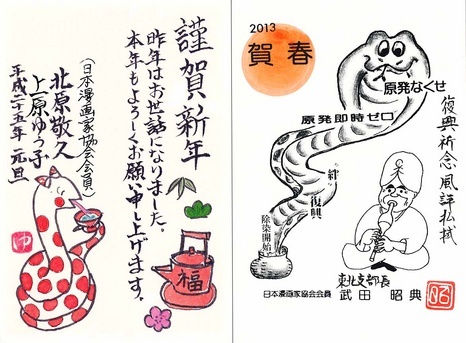 謹賀新年
昨年はお世話になりました。
本年もよろしくお願い申し上げます。
(日本漫画家協会会員)
北原敬久
上原ゆう子
平成二十五年 元旦
ゆ
福
2013
賀春
原発なくせ
原発即時ゼロ
絆
復興
除染開始
復興祈念風評払拭
東北支部長
日本漫画家協会会員 武田 昭典
昭